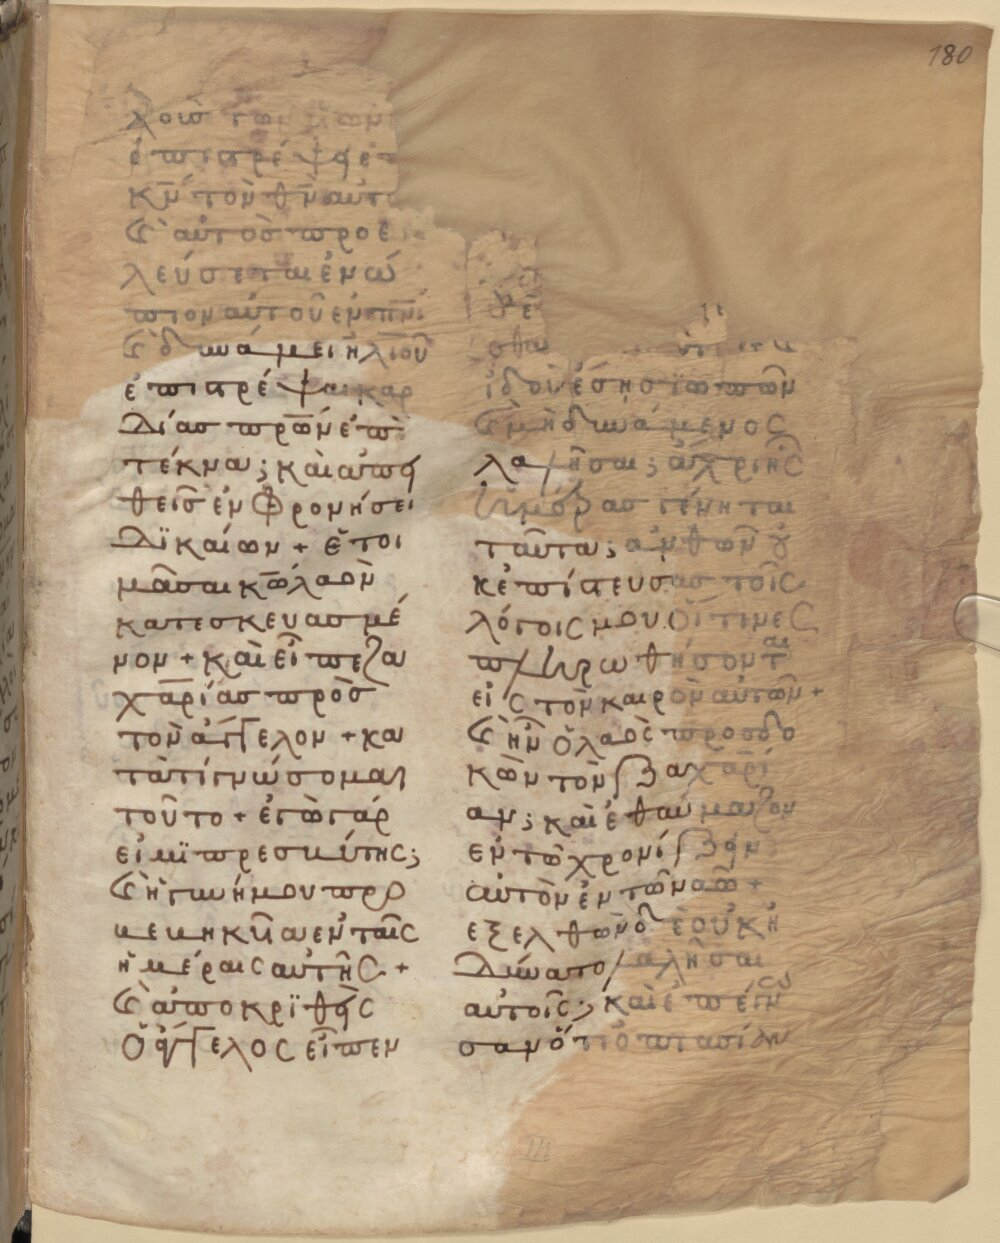 180
λους των
ἐπιστρέψει ἐπὶ
κ̅ν̅ τὸν θ̅ν̅ αὐτῶ
Καὶ αὐτὸς προε
λεύσεται ἐνώ
πιον αὐτοῦ ἐν π̅ν̅ι̅
Καὶ δυνάμει ἡλιοῦ
ἐπιστρέψαι καρ
δίας πρ̅ω̅ν ἐπὶ
τέκνα; καὶ ἀπει
θεῖς ἐν φρονήσει
Δικαίων + ἑτοι
μάσαι κ̅ω̅ λαὸν
κατεσκευασμέ
νον + καὶ εἶπε ζα
χαρίας πρὸς
τὸν ἄγγελον + κα
τὰ τί γνώσομαι
τοῦτο + ἐγὼ γάρ
εἰμὶ πρεσβύτης;
Καὶ ἡ γυνή μου προ
βεβηκυῖα ἐν ταῖς
ἡμέραις αὐτῆς +
Καὶ ἀποκριθεὶς
ὁ ἄγγελος εἶπεν
ἰδοὺ ἔσῃ σιωπῶν
Καὶ μὴ δυνάμενος
λαλῆσαι; ἄχρι ἧς
ἡμέρας γένηται
ταῦτα; ἀνθ ὧν οὐ
κ ἐπίστευσας τοῖς
λόγοις μου. Οἵτινες
πληρωθήσονται
εἰς τὸν καιρὸν αὐτῶν +
Καὶ ἦν ὁ λαὸς προσδο
κῶν τὸν ζαχαρί
αν; καὶ ἐθαύμαζον
ἐν τῷ χρονίζειν
αὐτὸν ἐν τῶ ναῶ +
ἐξελθὼν δὲ οὐκ ἠ
δύνατο λαλῆσαι
αὐτοῖς; καὶ ἐπέγνω
σαν ὅτι ὀπτασίαν